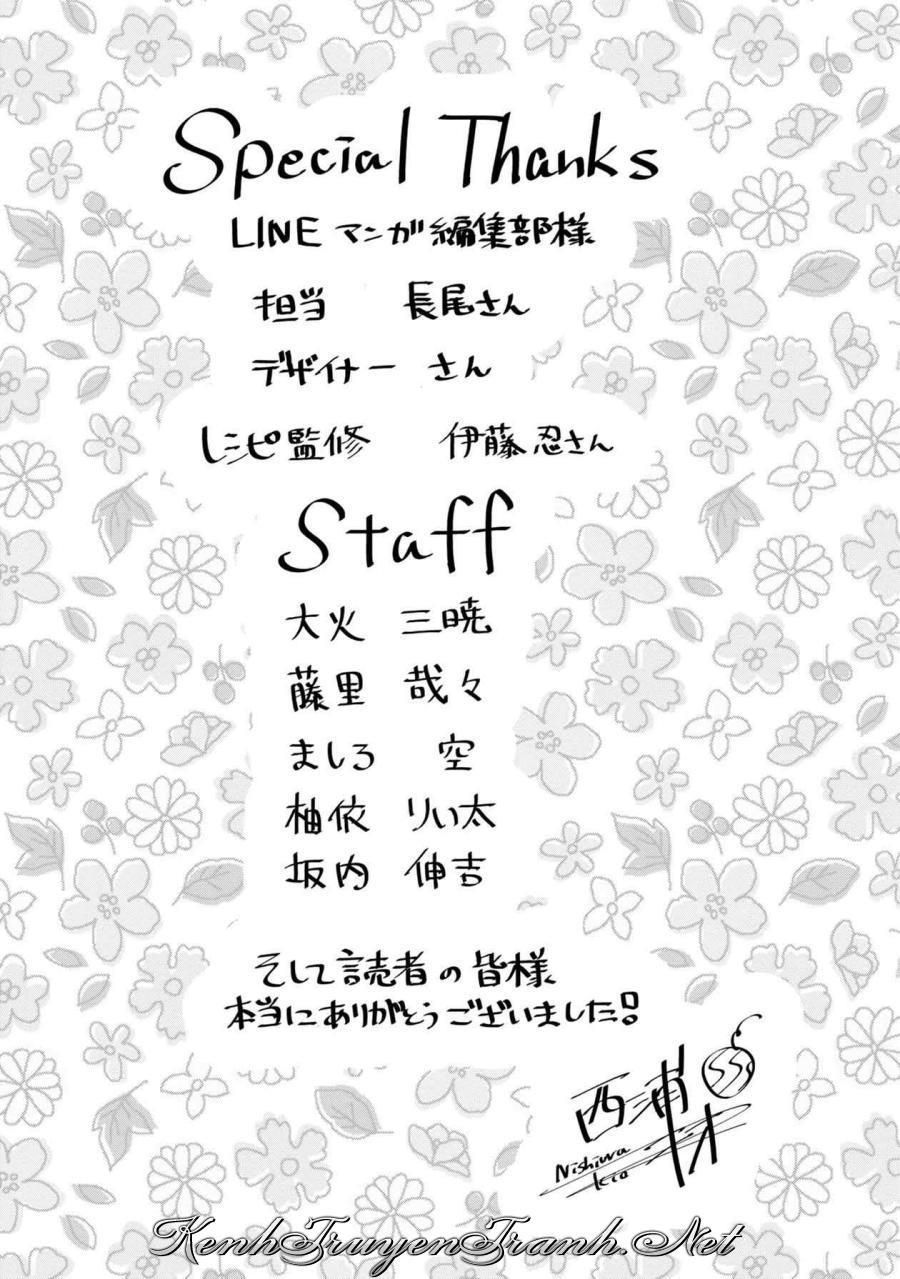 Special Thanks
LINE マンガ編集部様
担当 長尾さん
デザイナー さん
レシピ監修 伊藤忍さん
Staff
大火 三暁
藤里 哉々
ましろ 空
柚依 りい太
坂内 伸吉
そして読者の皆様
本当にありがとうございました!
西浦キオ
Nishiura
kio
KenhTruyenTranh.Net